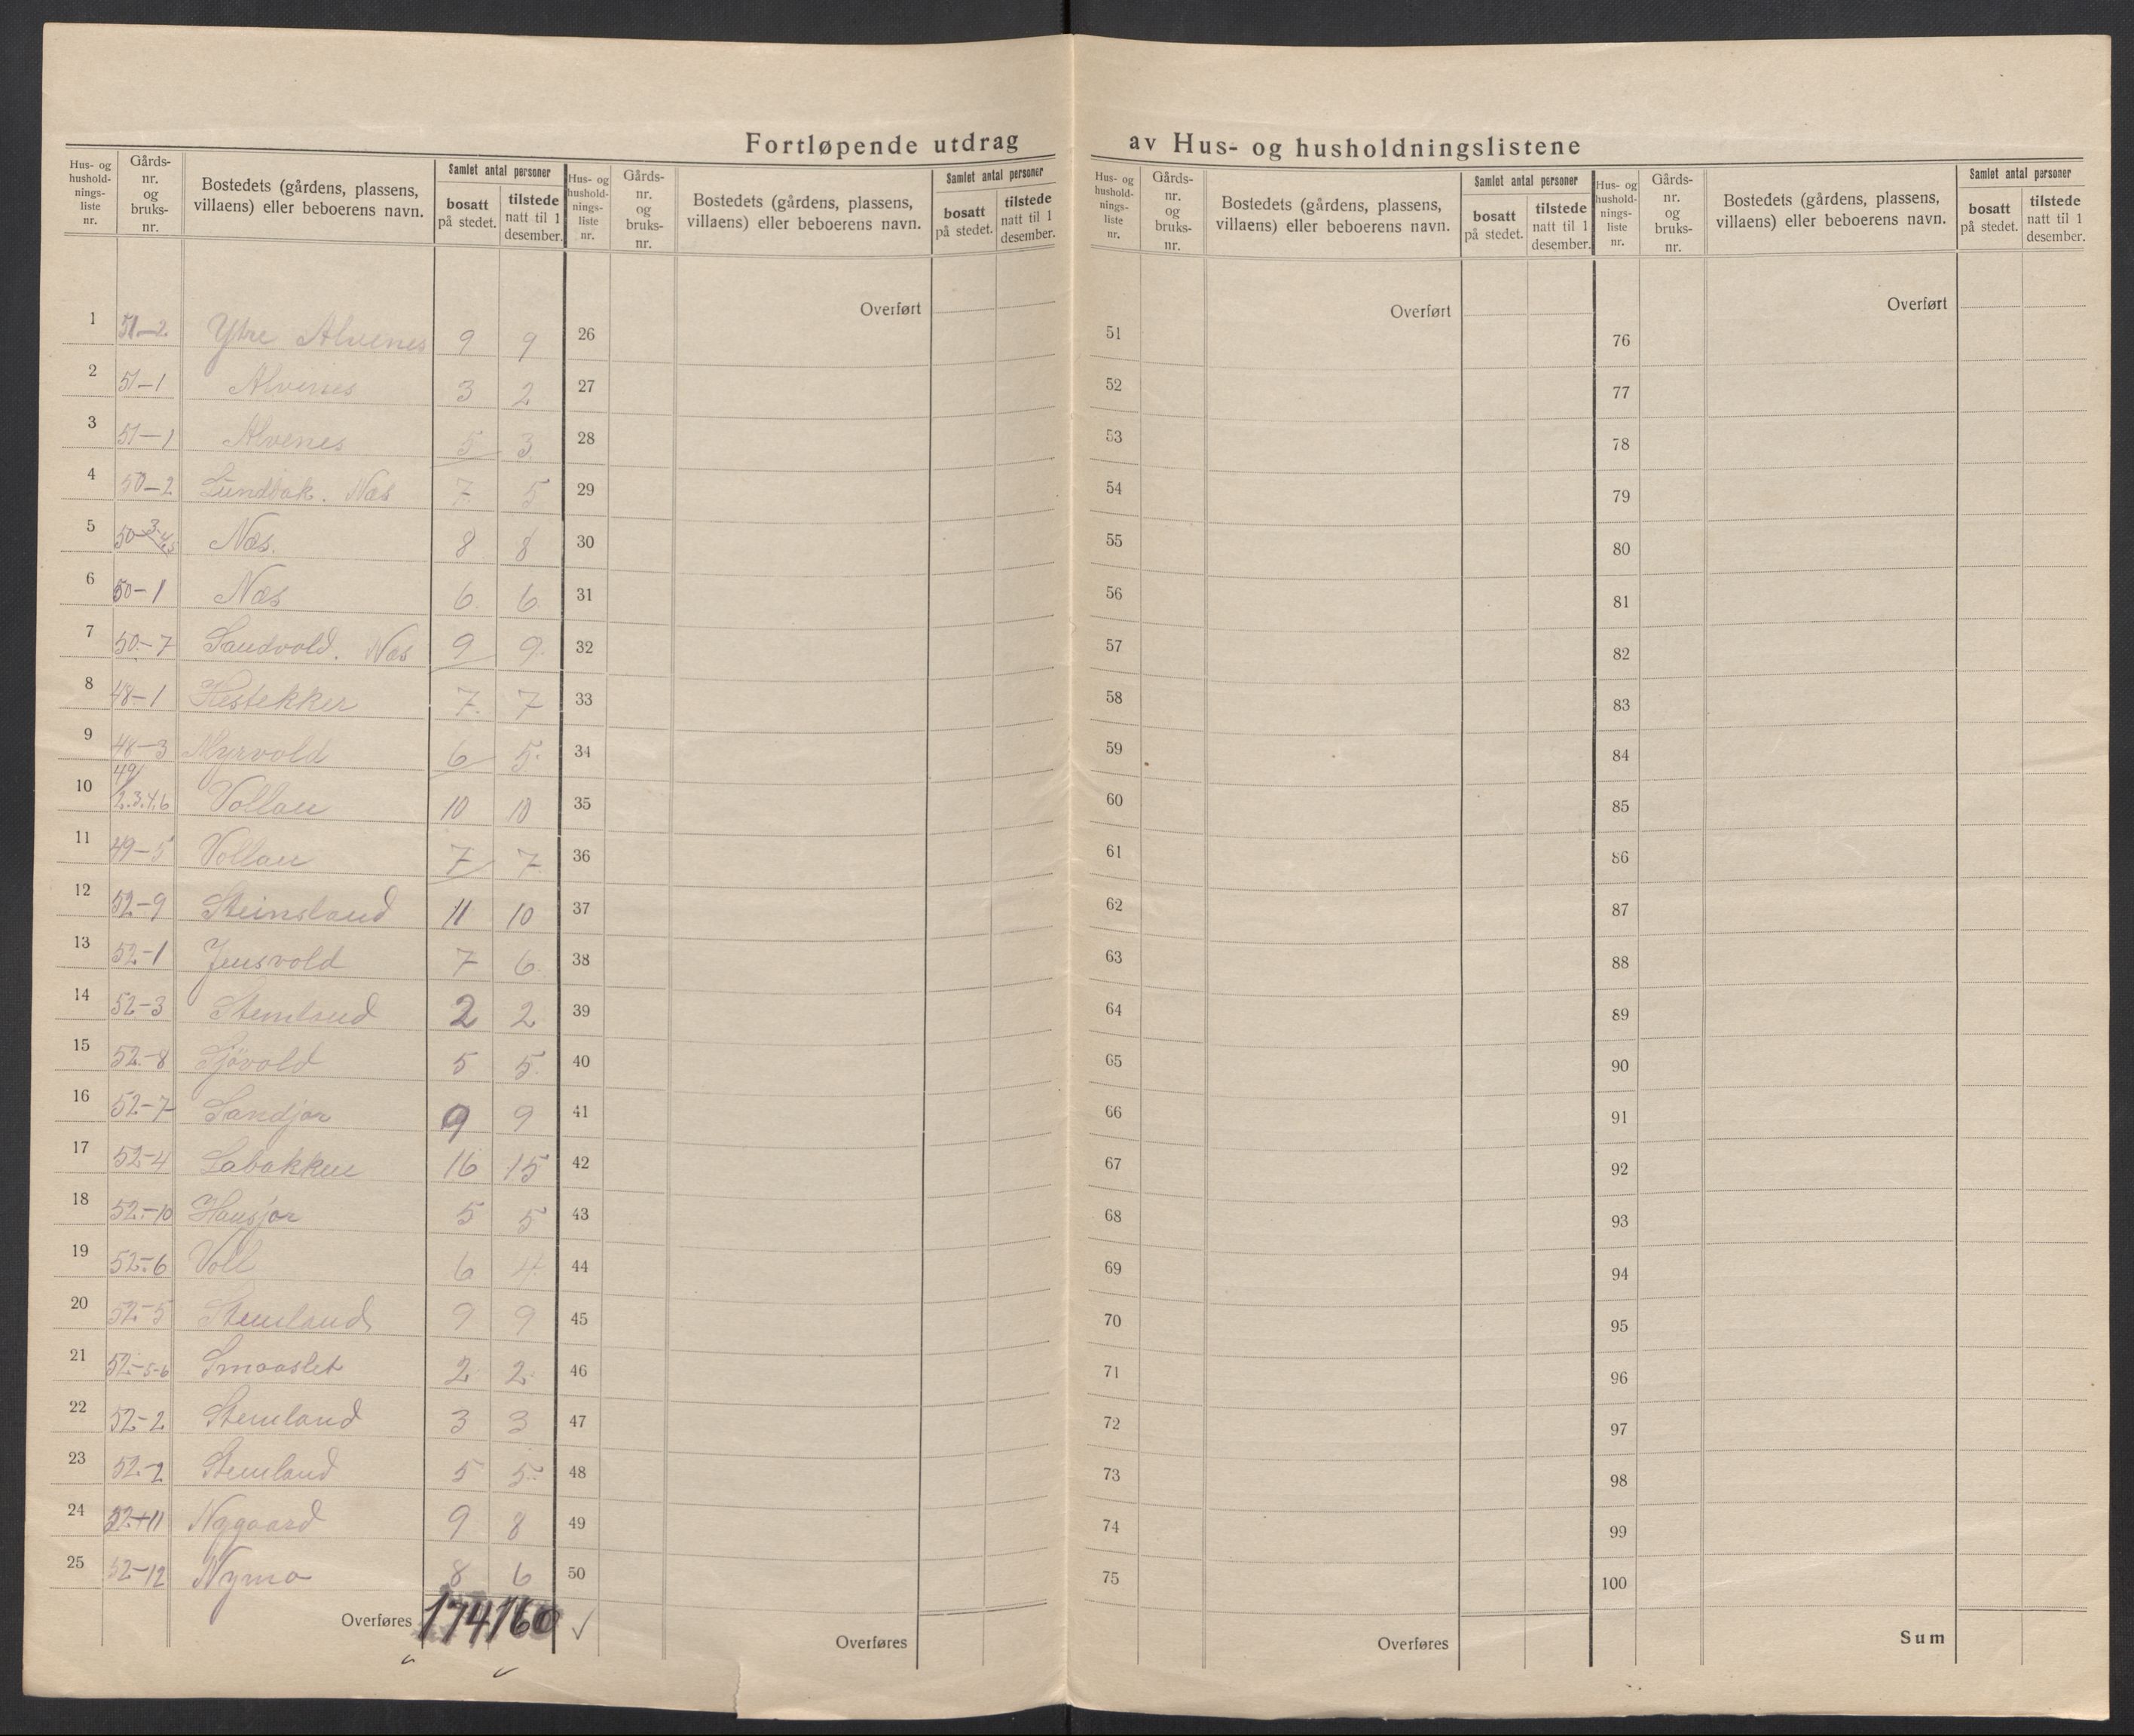 Fortløpende utdrag av Hus- og husholdningslistene
Hus- og husholdnings-liste nr. Gårds-nr. og bruks-nr. Bostedets (gårdens, plassens, villaens) eller beboerens navn. Samlet antal personer bosatt på stedet. tilstede natt til 1 desember.
Hus- og husholdnings-liste nr. Gårds-nr. og bruks-nr. Bostedets (gårdens, plassens, villaens) eller beboerens navn. Samlet antal personer bosatt på stedet. tilstede natt til 1 desember.
Hus- og husholdnings-liste nr. Gårds-nr. og bruks-nr. Bostedets (gårdens, plassens, villaens) eller beboerens navn. Samlet antal personer bosatt på stedet. tilstede natt til 1 desember.
Hus- og husholdnings-liste nr. Gårds-nr. og bruks-nr. Bostedets (gårdens, plassens, villaens) eller beboerens navn. Samlet antal personer bosatt på stedet. tilstede natt til 1 desember.
Overført Overført Overført
1 51-2 Ytre Alvenes 9 9 26 51 76
2 51-1 Alvenes 3 2 27 52 77
3 51-1 Alvenes 5 3 28 53 78
4 50-2 Lundbak. Næs 7 5 29 54 79
5 50-3,4,5 Næs. 8 8 30 55 80
6 50-1 Næs 6 6 31 56 81
7 50-7 Sandvold. Næs 9 9 32 57 82
8 48-1 Hestekker 7 7 33 58 83
9 48-3 Myrvold 6 5 34 59 84
10 49/2.3.4.6 Vollan 10 10 35 60 85
11 49-5 Vollan 7 7 36 61 86
12 52-9 Steinsland 11 10 37 62 87
13 52-1 Jensvold 7 6 38 63 88
14 52-3 Stemland 2 2 39 64 89
15 52-8 Sjövold 5 5 40 65 90
16 52-7 Sandjor 9 9 41 66 91
17 52-4 Labakken 16 15 42 67 92
18 52-10 Hansjor 5 5 43 68 93
19 52-6 Voll 6 4 44 69 94
20 52-5 Stemland 9 9 45 70 95
21 52-5-6 Smaaslet 2 2 46 71 96
22 52-2 Stemland 3 3 47 72 97
23 52-2 Stemland 5 5 48 73 98
24 52-11 Nygaard 9 8 49 74 99
25 52-12 Nymo 8 6 50 75 100
Overføres 174 160 ✓ Overføres Overføres Sum